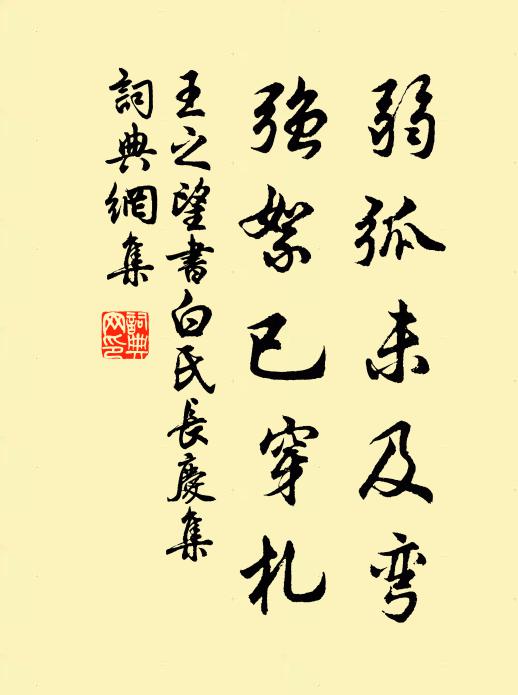 弱弧未及弯
强絮已穿札
王之望书白氏長慶集
詞典網集
詞典网印